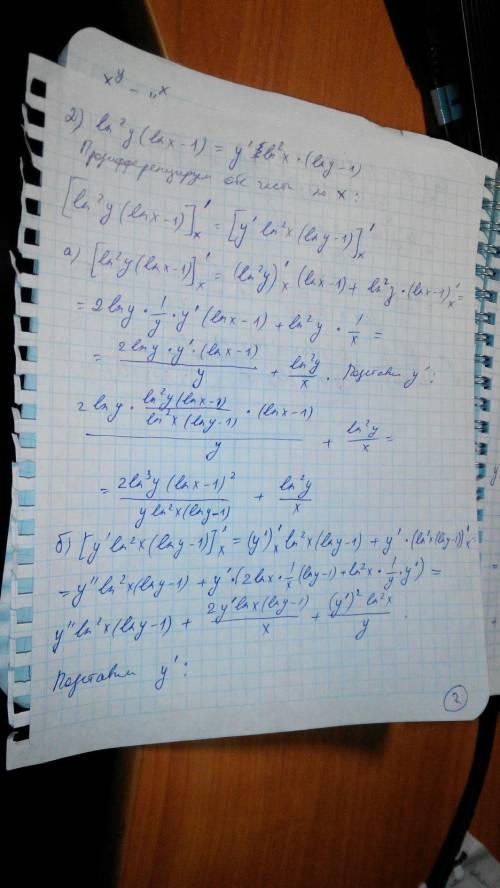 x^y = y^x
2) ln²y (lnx-1) = y' ln²x · (lny-1)
Продифференцируем обе части по x:
[ln²y (lnx-1)]'ₓ = [y' ln²x (lny-1)]'ₓ
а) [ln²y (lnx-1)]'ₓ = (ln²y)'ₓ · (lnx-1) + ln²y · (lnx-1)'ₓ =
= 2lny · 1/y · y' (lnx-1) + ln²y · 1/x =
= (2lny · y' · (lnx-1))/y + ln²y/x . Подставим y':
(2lny · (ln²y (lnx-1))/(ln²x (lny-1)) · (lnx-1))/y + ln²y/x =
= (2ln³y (lnx-1)²)/(y ln²x (lny-1)) + ln²y/x
б) [y' ln²x (lny-1)]'ₓ = (y')'ₓ ln²x (lny-1) + y' · (ln²x (lny-1))'ₓ =
= y'' ln²x (lny-1) + y' · (2lnx · 1/x (lny-1) + ln²x · 1/y · y') =
y'' ln²x (lny-1) + (2y' lnx (lny-1))/x + ((y')² ln²x)/y .
Подставим y':
2